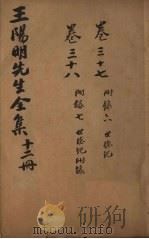 卷三十七 附錄六 世德紀
卷三十八 附錄七 世德紀附錄
王陽明先生全集 十二冊